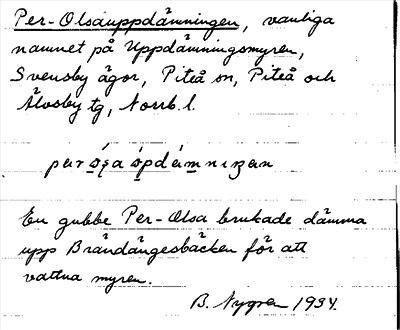 Per-Olsauppdämningen, vanliga
namnet på Uppdämningsmyren,
Svensby ägor, Piteå sn, Piteå och
Älvsby tg, Norrb. l.
En gubbe Per-Olsa brukade dämma
upp Brändängesbäcken för att
vattna myren.
B. Nygren 1934.